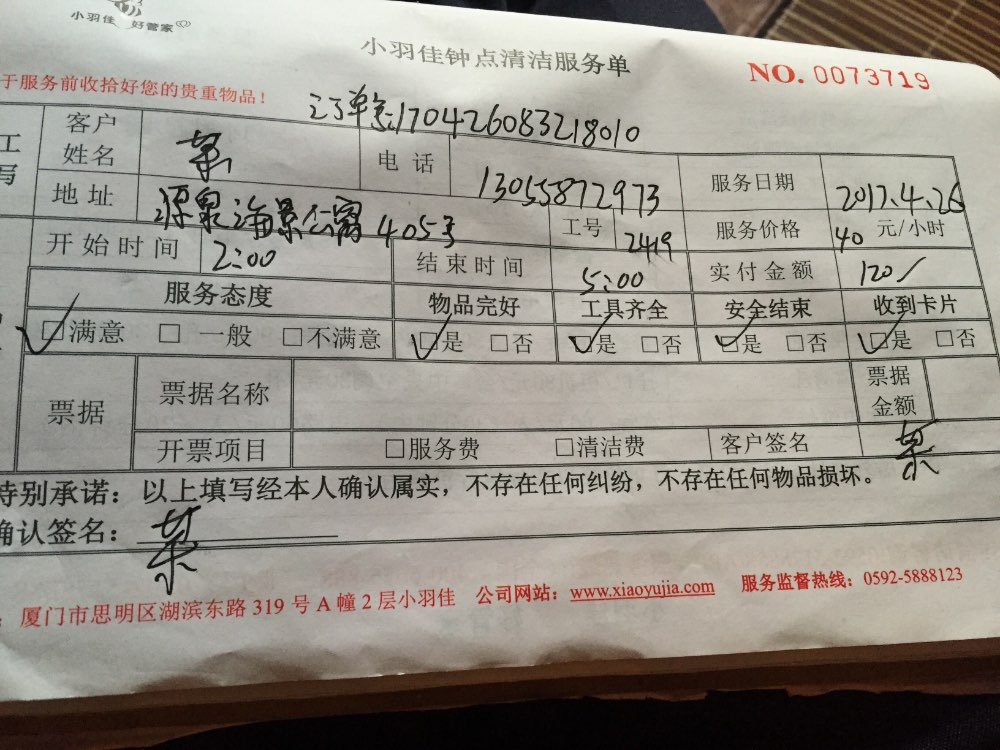 小羽佳 好管家
小羽佳钟点清洁服务单
NO. 0073719
于服务前收拾好您的贵重物品！
订单号:170426083218010
工
写
客户姓名
电话 13055872973
服务日期 2017.4.26
地址 源泉海景公寓405号
工号 2419
服务价格 40 元/小时
开始时间 2:00
结束时间 5:00
实付金额 120/
服务态度 物品完好 工具齐全 安全结束 收到卡片
✓□满意 □一般 □不满意 ✓□是 □否 ✓□是 □否 ✓□是 □否 ✓□是 □否
票据 票据名称 票据金额
开票项目 □服务费 □清洁费 客户签名
特别承诺：以上填写经本人确认属实，不存在任何纠纷，不存在任何物品损坏。
确认签名：
：厦门市思明区湖滨东路319号A幢2层小羽佳 公司网站：www.xiaoyujia.com 服务监督热线：0592-5888123